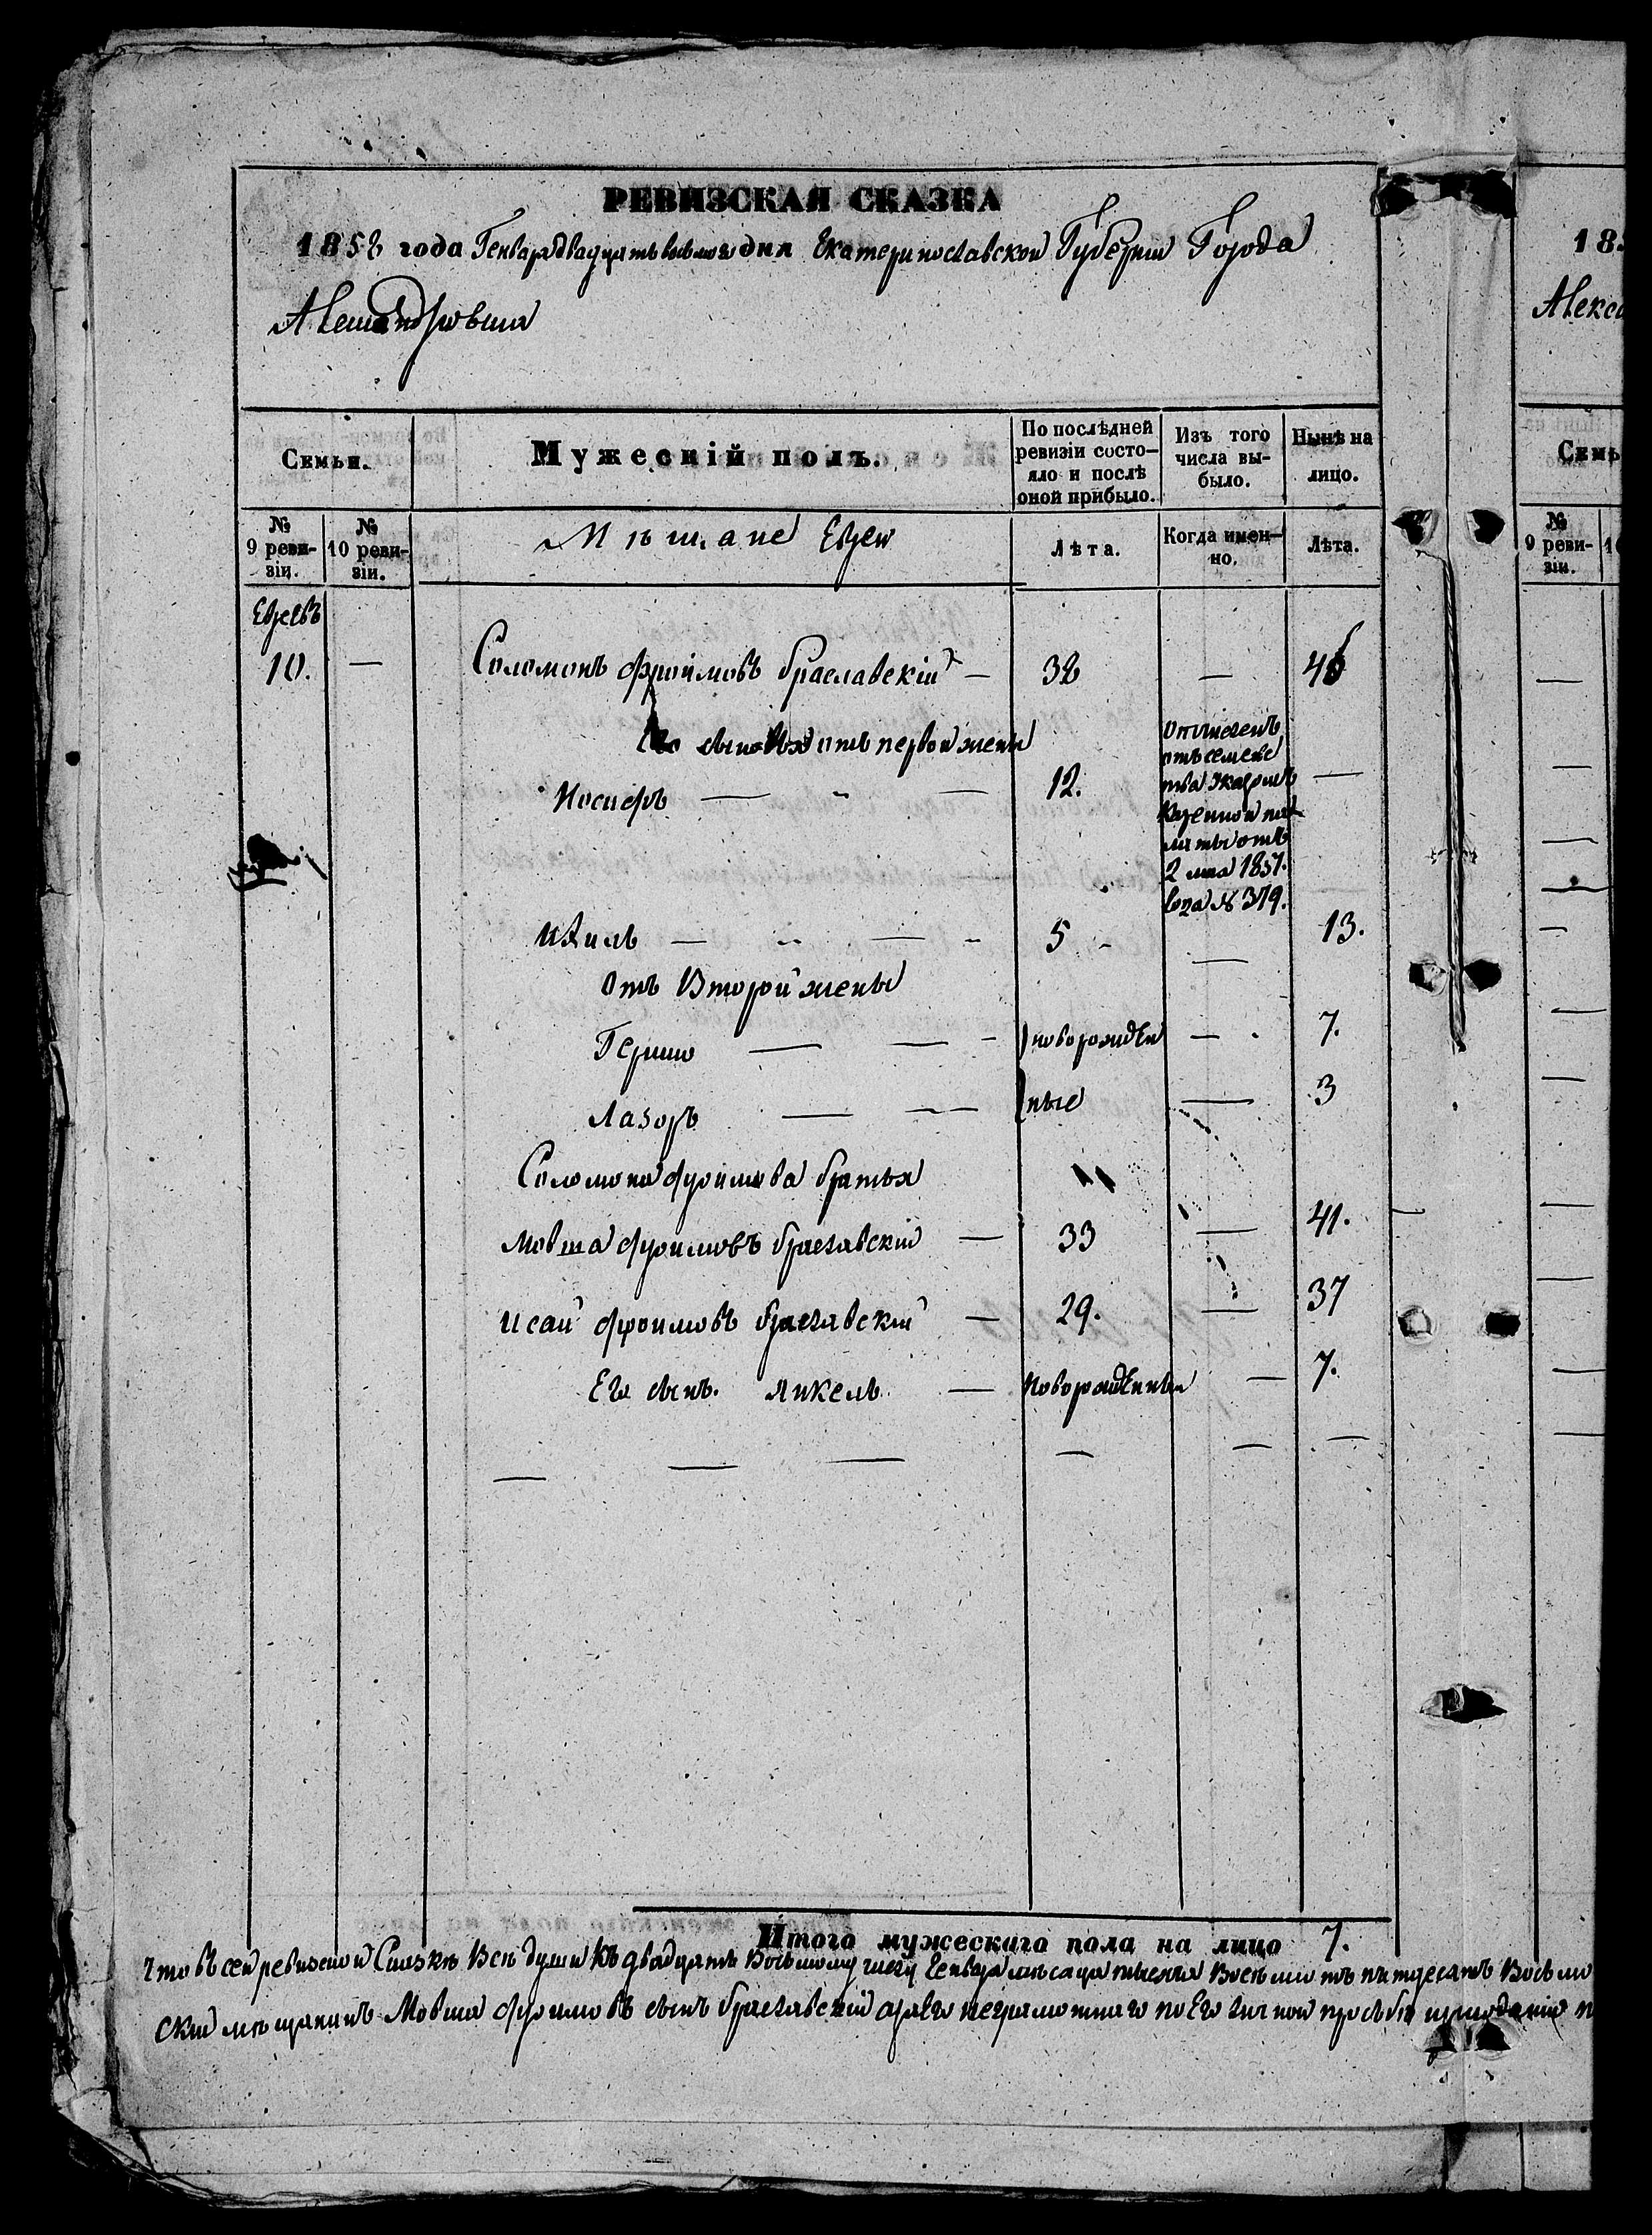 РЕВИЗСКАЯ СКАЗКА
1858 года Генваря двадцать восьмого дня Екатеринославской Губернии Города
Александровска
Семьи.
Мужескій полъ.
По послѣдней
ревизіи состо-
яло и послѣ
оной прибыло.
Изъ того
числа вы-
было.
Нынѣ на
лицо.
№
9 реви-
зіи.
№
10 реви-
зіи.
Мѣщане Евреи
Лѣта.
Когда имен-
но.
Лѣта.
Евреевъ
10. —
Соломонъ Фроимовъ Браславскій — 38 — 46
Его сыновья отъ первой жены
Иосиф — 12. —
Отчисленъ
отъ семейс
тва
Казенной па
латы отъ
2 мая 1857.
года № 379.
— — 5 — 13.
Отъ Второй жены
Герш — — новорожден — 7.
Лазоръ — — ные — 3
Соломона Фроимова братья
Мовша Фроимовъ Браславскій — 33 — 41.
Исай Фроимовъ Браславскій — 29. — 37
Его сынъ. Янкель — Новорожденный — 7.
Итого мужескаго пола на лицо 7.
Что въ сей ревизской Сказкѣ Всѣ души къ двадцать Восьмому числу Генваря мѣсяца тысяча Восемьсотъ пятдесятъ Восьмо
ской мѣщанинъ Мовша Фроимовъ сынъ Браславскій а за его неграмотнаго по Его личной прозьбѣ
18
Алекса
Семь
№
9 реви-
зіи.